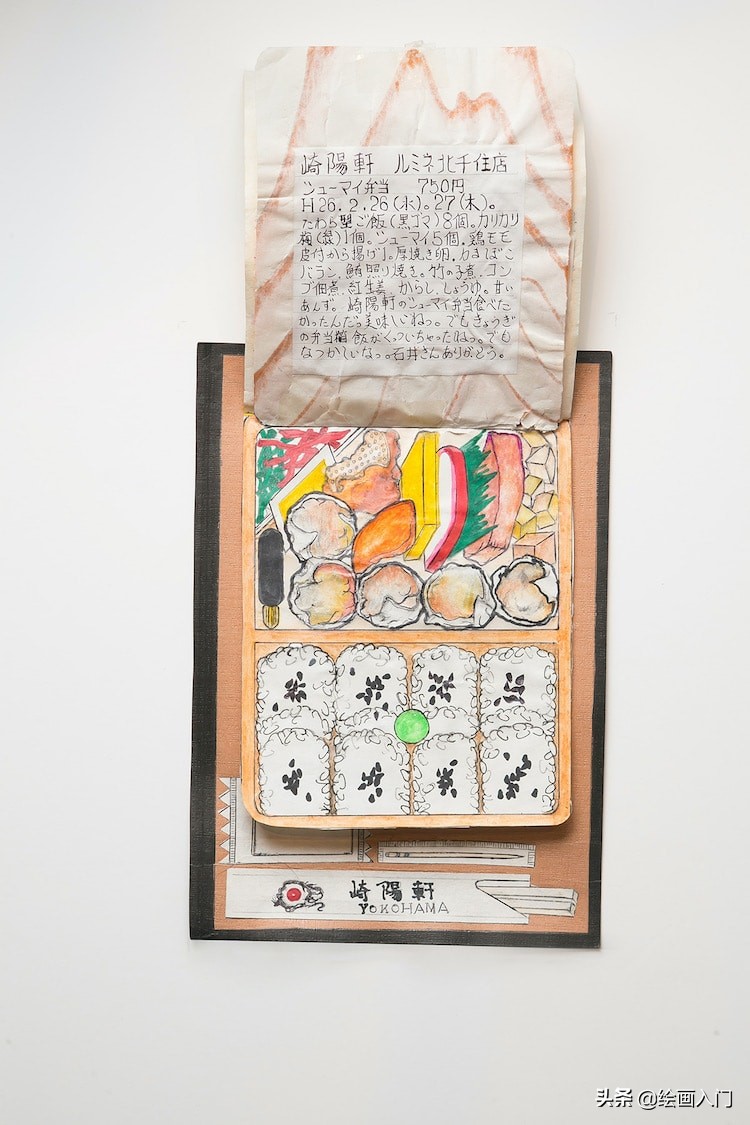 崎陽軒 ルミネ北千住店
シューマイ弁当 750円
H26.2.26(水)。27(木)。
たわら型ご飯(黒ゴマ)8個。カリカリ
梅(緑)1個。シューマイ5個.鶏モモ
皮付から揚げ1。厚焼き卵.カまぼこ
バラン.鮪照り焼き。竹の子煮.コン
ブ佃煮.紅生姜.からし.しょうゆ。甘い
あんず。崎陽軒のシューマイ弁当食べた
かったんだっ。美味しいねっ。でもきょうぎ
の弁当箱 飯がくっついちゃったねっ。でも
なつかしいなっ。石井さんありがとう。
崎陽軒
YOKOHAMA
头条 @绘画入门